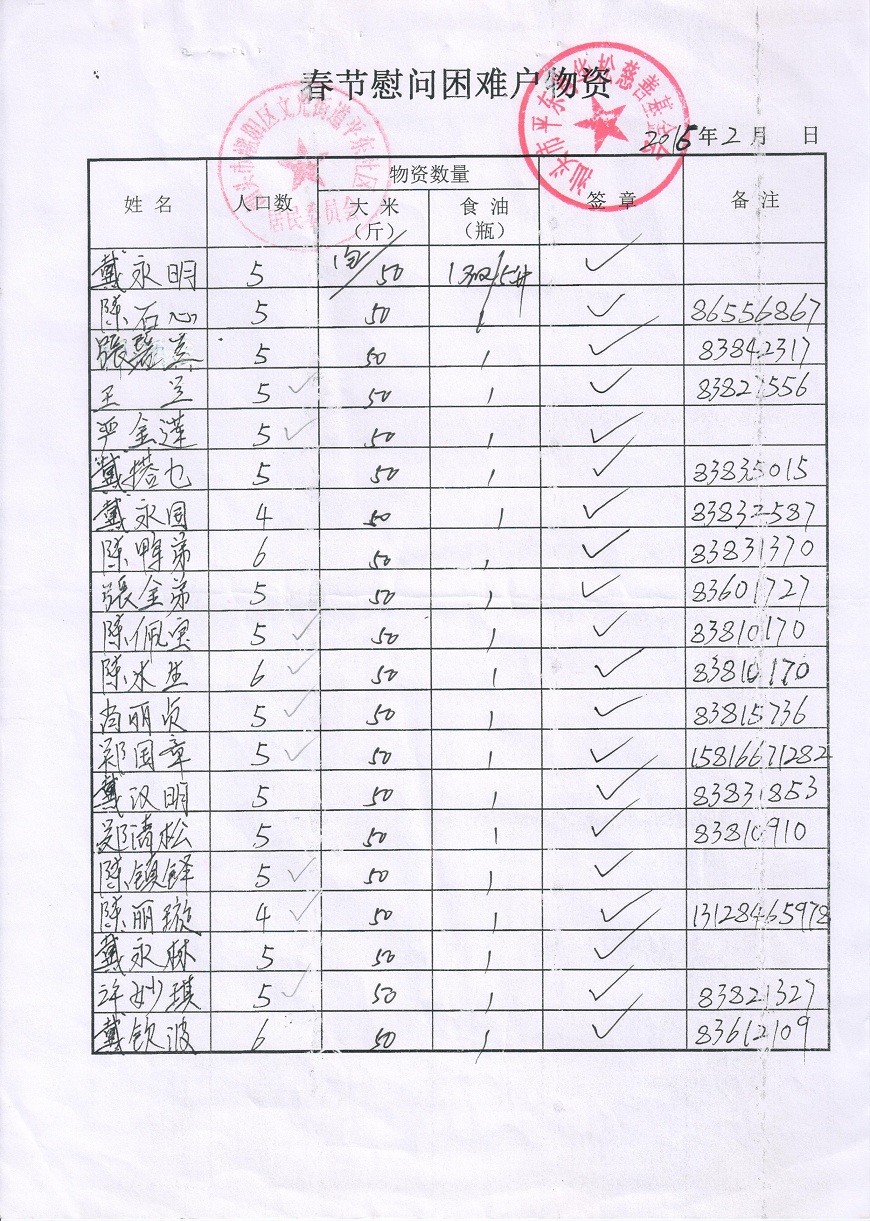 春节慰问困难户物资
2015年2月 日
汕头市潮阳区文光街道平东社区
居民委员会
物资数量
姓名 人口数 大米(斤) 食油(瓶) 签章 备注
戴永明 5 1包/50 ✓
陈石心 5 50 1 ✓ 86556867
張碧 5 50 1 ✓ 83842317
王兰 5 ✓ 50 1 ✓ 83827556
严金莲 5 ✓ 50 1 ✓
戴搭七 5 50 1 ✓ 83835015
戴永国 4 50 1 ✓ 83832587
陈鸭弟 6 50 1 ✓ 83831370
張金弟 5 50 1 ✓ 83601727
陈佩宝 5 ✓ 50 1 ✓ 83810170
陈木生 6 ✓ 50 1 ✓ 83810170
肖丽贞 5 ✓ 50 1 ✓ 83815736
郑国章 5 ✓ 50 1 ✓ 15816671282
戴汉明 5 50 1 ✓ 83831853
郑清松 5 50 1 ✓ 83810910
陈镇铎 5 ✓ 50 1 ✓
陈丽璇 4 ✓ 50 1 ✓ 13128465978
戴永林 5 50 1 ✓
许妙琪 5 ✓ 50 1 ✓ 83821327
戴钦波 6 50 1 ✓ 83612109